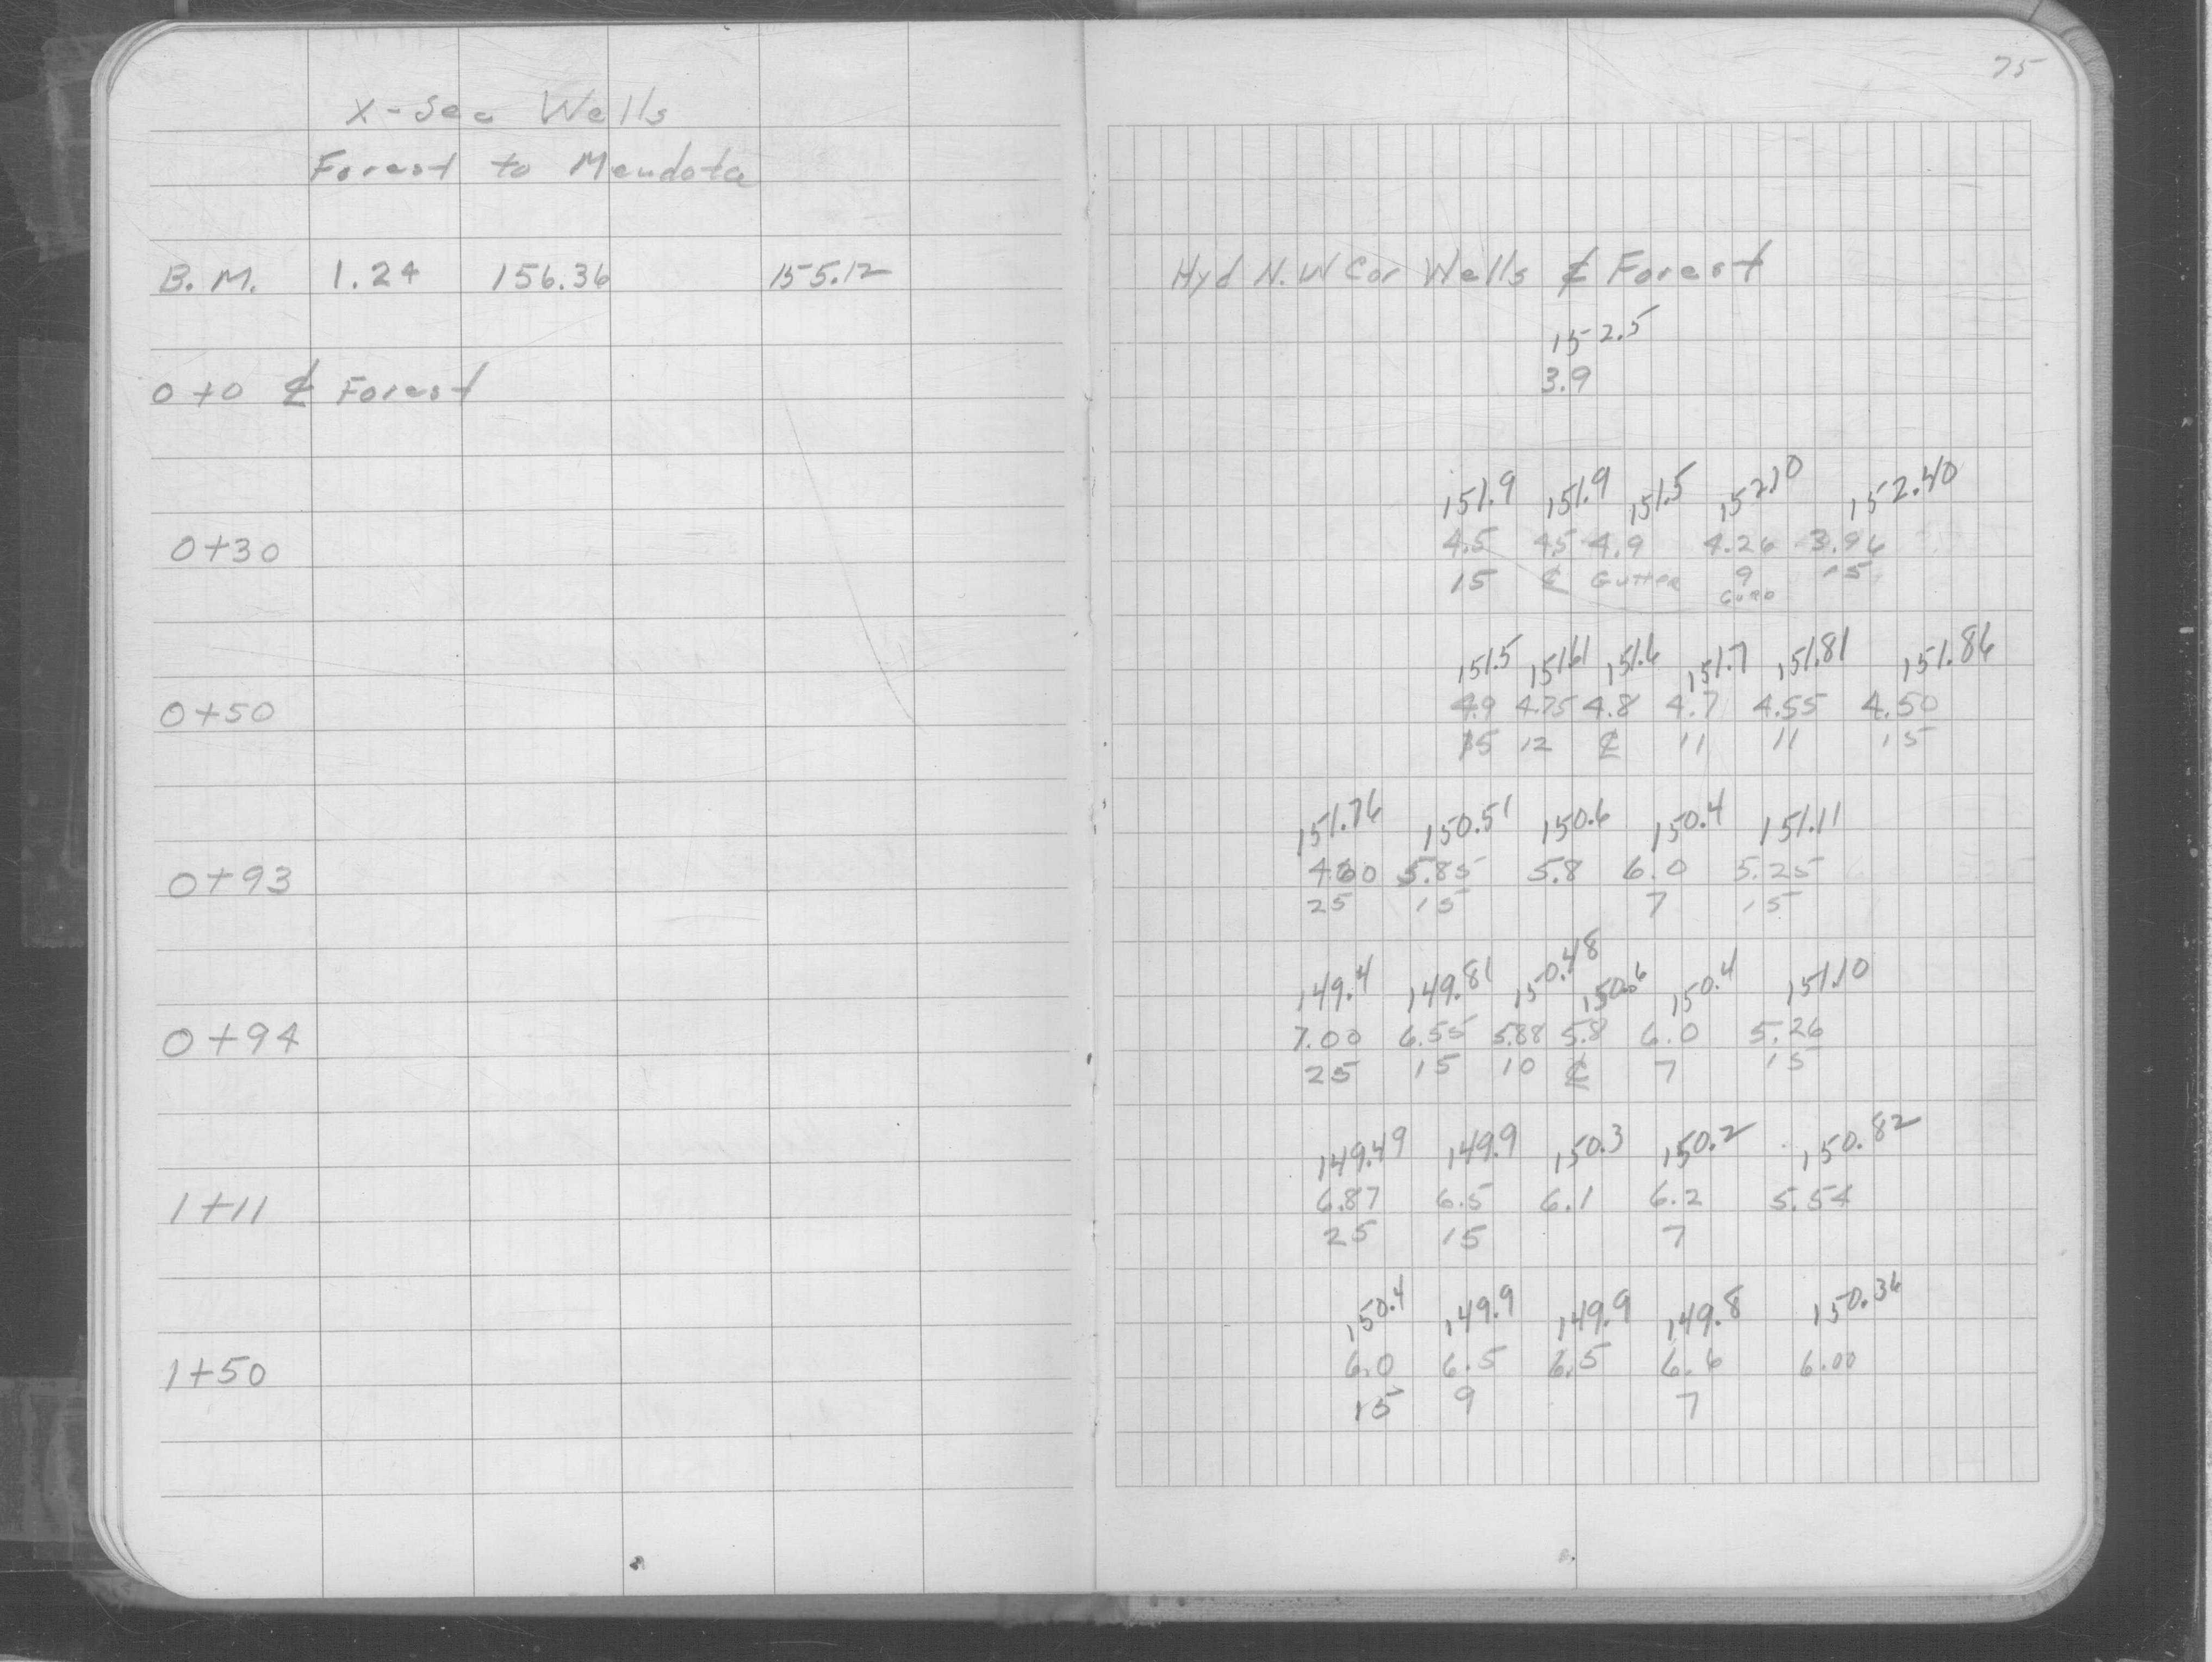 75
X-Sec Wells
Forest to Mendota
B.M. 1.24 156.36 155.12 Hyd N.W Cor Wells ₵ Forest
152.5
0+0 ₵ Forest 3.9
151.9 151.9 151.5 152.10 152.40
0+30 4.5 4.5 4.9 4.26 3.96
15 ₵ Gutter 9 15
Curb
151.5 151.61 151.6 151.7 151.81 151.86
0+50 4.9 4.75 4.8 4.7 4.55 4.50
15 12 ₵ 11 11 15
151.76 150.51 150.6 150.4 151.11
0+93 4.60 5.85 5.8 6.0 5.25
25 15 7 15
149.4 149.81 150.48 150.6 150.4 151.10
0+94 7.00 6.55 5.88 5.8 6.0 5.26
25 15 10 ₵ 7 15
149.49 149.9 150.3 150.2 150.82
1+11 6.87 6.5 6.1 6.2 5.54
25 15 7
150.4 149.9 149.9 149.8 150.36
1+50 6.0 6.5 6.5 6.6 6.00
15 9 7